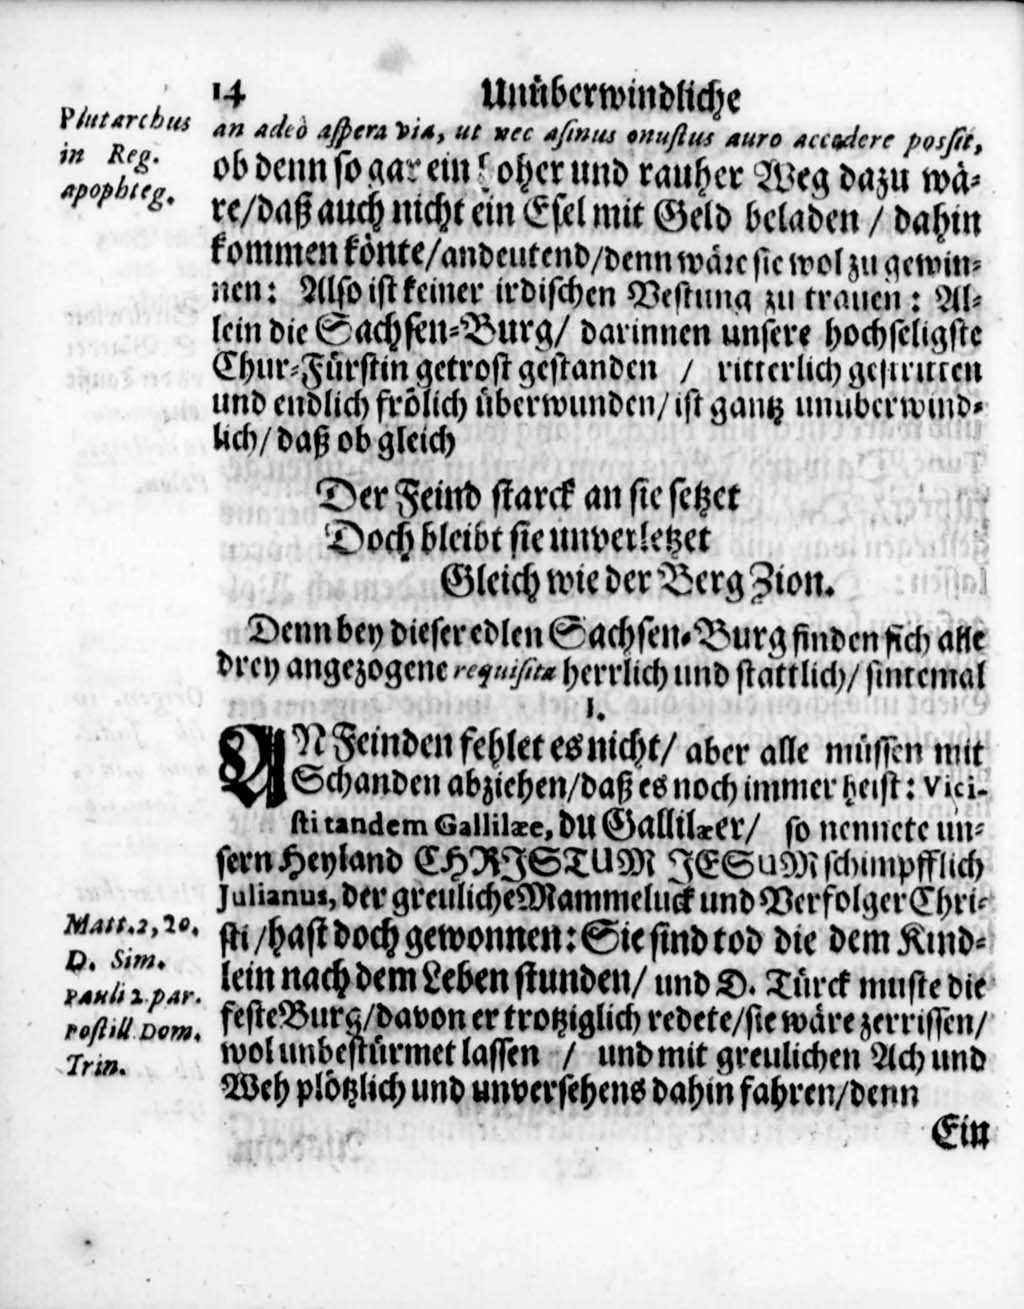 14 Unüberwindliche
Plutarchus
in Reg.
apophteg.
an adeò aſpera via, ut nec aſinus onuſtus auro accedere poſſit,
ob denn ſo gar ein hoher und rauher Weg dazu wä-
re/daß auch nicht ein Eſel mit Geld beladen / dahin
kommen könte/andeutend/denn wäre ſie wol zu gewin-
nen: Alſo iſt keiner irdiſchen Veſtung zu trauen: Al-
lein die Sachſen-Burg/ darinnen unſere hochſeligſte
Chur-Fürſtin getroſt geſtanden / ritterlich geſtritten
und endlich frölich überwunden/ iſt gantz unüberwind-
lich/ daß ob gleich
Der Feind ſtarck an ſie ſetzet
Doch bleibt ſie unverletzet
Gleich wie der Berg Zion.
Denn bey dieſer edlen Sachſen-Burg finden ſich alle
drey angezogene requiſita herrlich und ſtattlich/ ſintemal
I.
AN Feinden fehlet es nicht/ aber alle müſſen mit
Schanden abziehen/daß es noch immer heiſt: Vici-
ſti tandem Gallilæe, du Gallilæer/ ſo nennete un-
ſern Heyland CHRJSTUM JESUM ſchimpfflich
Julianus, der greuliche Mammeluck und Verfolger Chri-
ſti /haſt doch gewonnen: Sie ſind tod die dem Kind-
lein nach dem Leben ſtunden/ und D. Türck muſte die
feſte Burg/davon er trotziglich redete/ſie wäre zerriſſen/
wol unbeſtürmet laſſen / und mit greulichen Ach und
Weh plötzlich und unverſehens dahin fahren/denn
Matt.2,20.
D. Sim.
Pauli 2 par.
Poſtill Dom.
Trin.
Ein